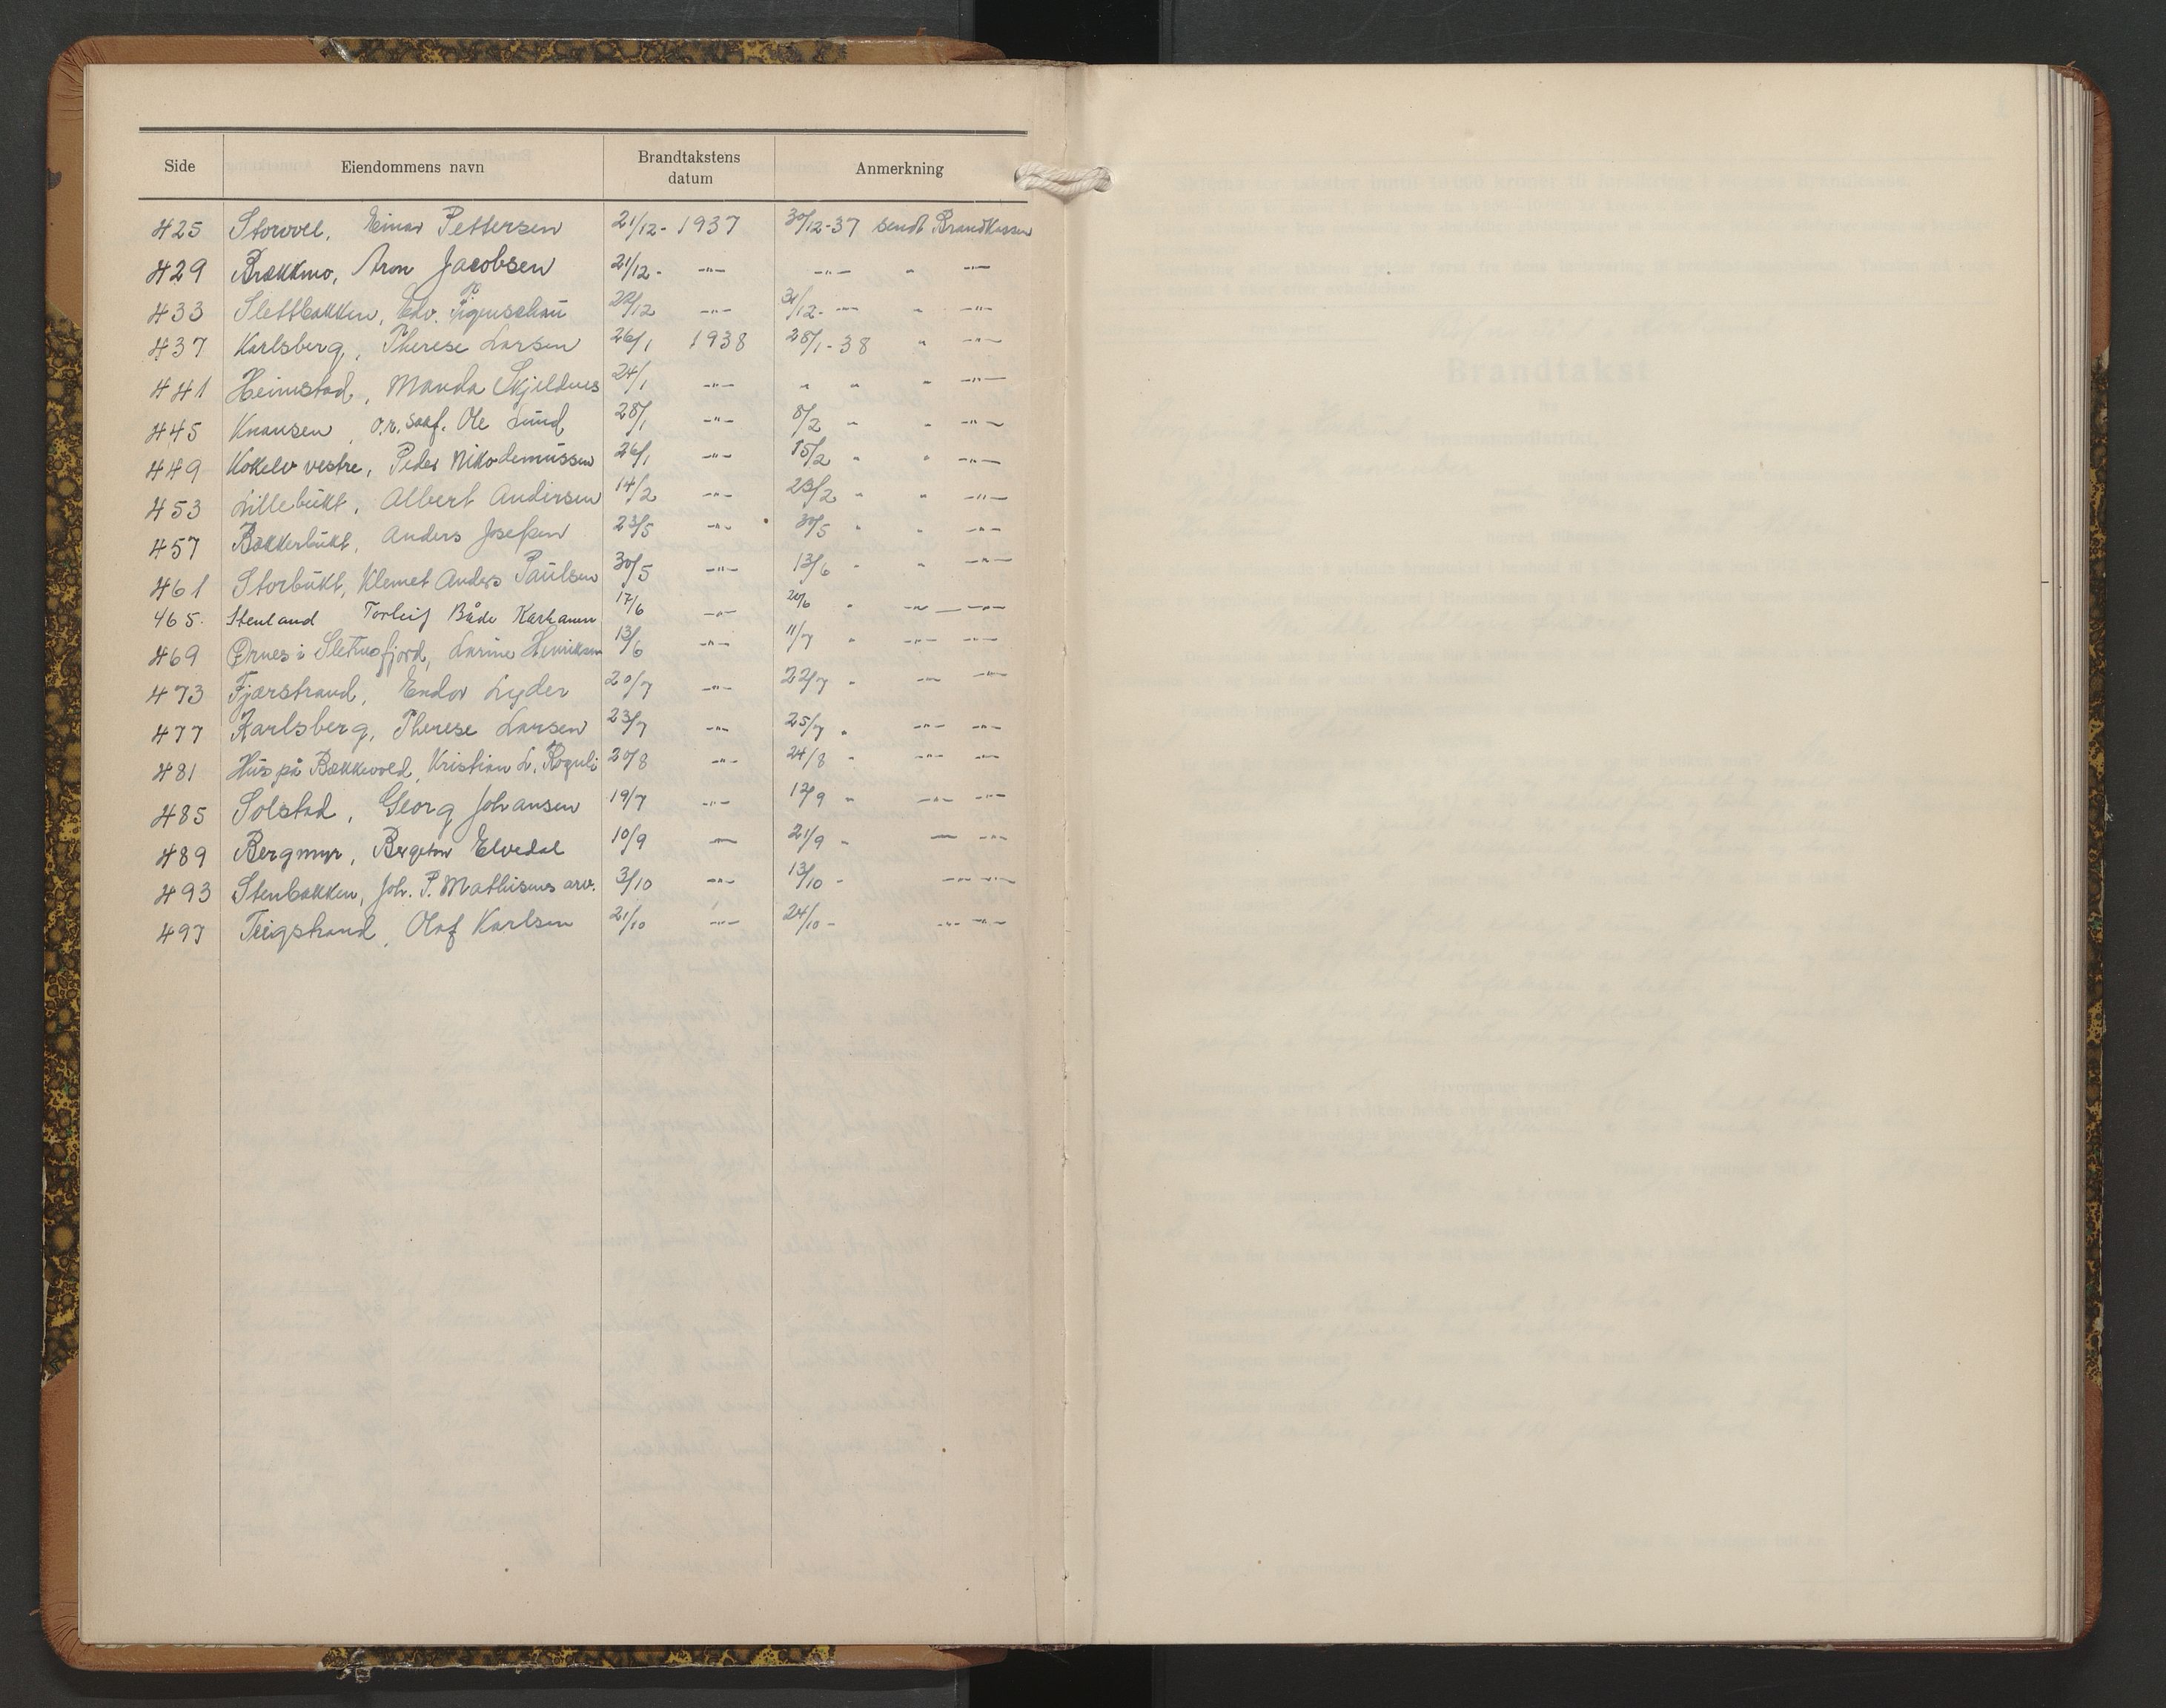 Side Eiendommens navn Brandtakstens datum Anmerkning
425 Storvoll, Einar Pettersen 21/12- 1937 30/12-37 sendt Brandkassen
429 Brækkmo, Aron Jacobsen 21/12- -"- -"- " -"-
433 Slettbakken, Edv. Figenschau 22/12 -"- 31/12- -"- " -"-
437 Karlsberg, Therese Larsen 26/1 1938 28/1-38 " -"-
441 Heimstad, Manda Skjeldnes 24/1 -"- " " " -"-
445 Knausen, o.r. saaf. Ole Lund 28/1 -"- 8/2 " " -"-
449 Kokelv vestre, Peder Nikodemussen 26/1 -"- 15/2 " " -"-
453 Lillebukt, Albert Andersen 14/2 -"- 23/2 " " -"-
457 Bækkerbukt, Anders Josefsen 23/5 -"- 30/5 " " -"-
461 Storbukt, Klemet Anders Paulsen 30/5 -"- 13/6 " " -"-
465. Stenland Torleif Både 17/6 -"- 20/6 " -"- -"-
469 Ørnes i Larine Henriksen 13/6 -"- 11/7 " -"- -"-
473 Fjærstrand, Endor Lyder 20/7 -"- 22/7 " -"- -"-
477 Karlsberg, Therese Larsen 23/7 -"- 25/7 " -"- -"-
481 Hus på Bækkevold, Kristian L. 20/8 -"- 24/8 " -"- -"-
485 Solstad, Georg Johansen 19/7 -"- 12/9 " -"- -"-
489 Bergmyr, Bergeton Elvedal 10/9 -"- 21/9 - -"- -"-
493 Stenbakken, Joh. P. Mathisens arv. 3/10 -"- 13/10 - -"- -"-
497 Teigstrand, Olaf Karlsen 21/10 -"- 24/10 - -"- -"-